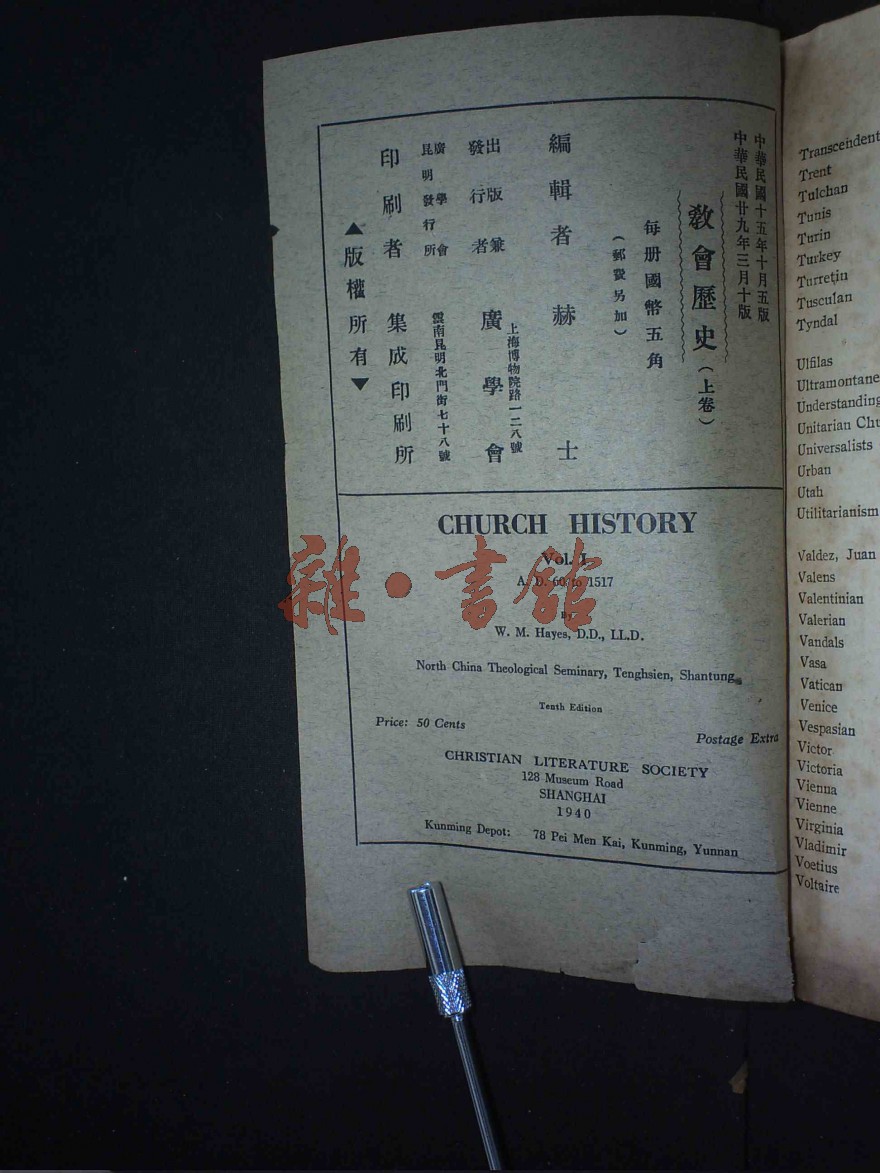 中華民國十五年十月五版
中華民國廿九年三月十版
教會歷史（上卷）
每册國幣五角
（郵費另加）
編輯者 赫士
出版兼
發行者 廣學會
上海博物院路一二八號
廣學會
昆明發行所 雲南昆明北門街七十八號
印刷者 集成印刷所
▲版權所有▼
CHURCH HISTORY
Vol. I
A. D. 60 to 1517
By
W. M. Hayes, D.D., LL.D.
North China Theological Seminary, Tenghsien, Shantung.
Tenth Edition
Price: 50 Cents
Postage Extra
CHRISTIAN LITERATURE SOCIETY
128 Museum Road
SHANGHAI
1940
Kunming Depot: 78 Pei Men Kai, Kunming, Yunnan
雜·書館
Transcendent
Trent
Tulchan
Tunis
Turin
Turkey
Turretin
Tusculan
Tyndal
Ulfilas
Ultramontane
Understanding
Unitarian Chu
Universalists
Urban
Utah
Utilitarianism
Valdez, Juan
Valens
Valentinian
Valerian
Vandals
Vasa
Vatican
Venice
Vespasian
Victor
Victoria
Vienna
Vienne
Virginia
Vladimir
Voetius
Voltaire